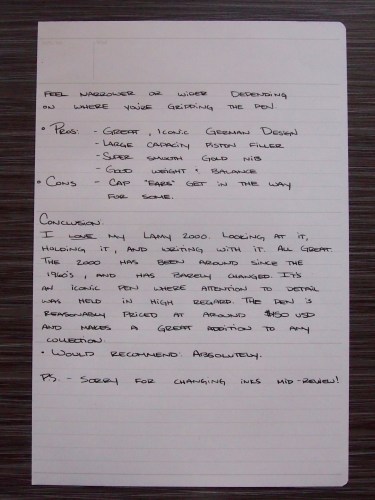 FEEL NARROWER OR WIDER DEPENDING
ON WHERE YOU'RE GRIPPING THE PEN.
• PROS: - GREAT, ICONIC GERMAN DESIGN
- LARGE CAPACITY PISTON FILLER
- SUPER SMOOTH GOLD NIB
- GOOD WEIGHT & BALANCE
• CONS - CAP "EARS" GET IN THE WAY
FOR SOME.
CONCLUSION:
I LOVE MY LAMY 2000. LOOKING AT IT,
HOLDING IT, AND WRITING WITH IT. ALL GREAT.
THE 2000 HAS BEEN AROUND SINCE THE
1960'S, AND HAS BARELY CHANGED. IT'S
AN ICONIC PEN WHERE ATTENTION TO DETAIL
WAS HELD IN HIGH REGARD. THE PEN IS
REASONABLY PRICED AT AROUND $150 USD
AND MAKES A GREAT ADDITION TO ANY
COLLECTION.
• WOULD RECOMMEND. ABSOLUTELY.
PS. - SORRY FOR CHANGING INKS MID-REVIEW!